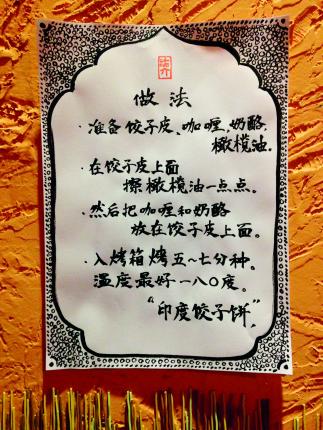 做法
· 准备饺子皮、咖喱、奶酪、
橄榄油。
· 在饺子皮上面
擦橄榄油一点点。
· 然后把咖喱和奶酪
放在饺子皮上面。
· 入烤箱烤五~七分种。
温度最好一八〇度。
“印度饺子饼”